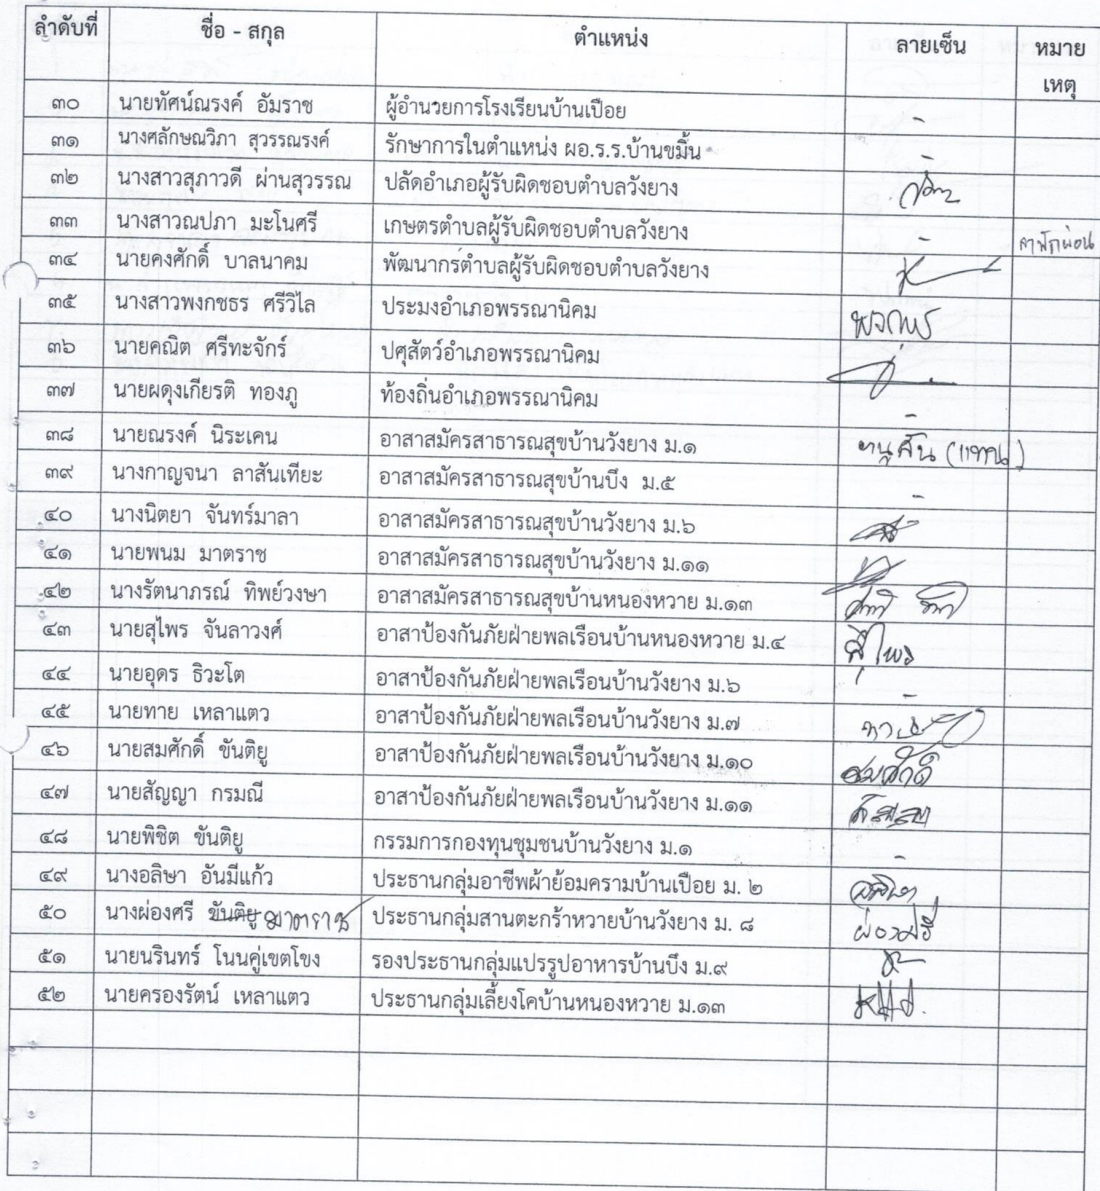 ลำดับที่ ชื่อ - สกุล ตำแหน่ง ลายเซ็น หมาย
เหตุ
๓๐ นายทัศน์ณรงค์ อัมราช ผู้อำนวยการโรงเรียนบ้านเปือย -
๓๑ นางศลักษณวิภา สุวรรณรงค์ รักษาการในตำแหน่ง ผอ.ร.ร.บ้านขมิ้น -
๓๒ นางสาวสุภาวดี ผ่านสุวรรณ ปลัดอำเภอผู้รับผิดชอบตำบลวังยาง
๓๓ นางสาวณปภา มะโนศรี เกษตรตำบลผู้รับผิดชอบตำบลวังยาง - ลาพักผ่อน
๓๔ นายคงศักดิ์ บาลนาคม พัฒนากรตำบลผู้รับผิดชอบตำบลวังยาง
๓๕ นางสาวพงกชธร ศรีวิไล ประมงอำเภอพรรณานิคม
๓๖ นายคณิต ศรีทะจักร์ ปศุสัตว์อำเภอพรรณานิคม
๓๗ นายผดุงเกียรติ ทองภู ท้องถิ่นอำเภอพรรณานิคม
๓๘ นายณรงค์ นิระเคน อาสาสมัครสาธารณสุขบ้านวังยาง ม.๑ (แทน)
๓๙ นางกาญจนา ลาสันเทียะ อาสาสมัครสาธารณสุขบ้านบึง ม.๕ -
๔๐ นางนิตยา จันทร์มาลา อาสาสมัครสาธารณสุขบ้านวังยาง ม.๖
๔๑ นายพนม มาตราช อาสาสมัครสาธารณสุขบ้านวังยาง ม.๑๑
๔๒ นางรัตนาภรณ์ ทิพย์วงษา อาสาสมัครสาธารณสุขบ้านหนองหวาย ม.๑๓
๔๓ นายสุไพร จันลาวงศ์ อาสาป้องกันภัยฝ่ายพลเรือนบ้านหนองหวาย ม.๔ สุไพร
๔๔ นายอุดร ธิวะโต อาสาป้องกันภัยฝ่ายพลเรือนบ้านวังยาง ม.๖ -
๔๕ นายทาย เหลาแตว อาสาป้องกันภัยฝ่ายพลเรือนบ้านวังยาง ม.๗
๔๖ นายสมศักดิ์ ขันติยู อาสาป้องกันภัยฝ่ายพลเรือนบ้านวังยาง ม.๑๐ สมศักดิ์
๔๗ นายสัญญา กรมณี อาสาป้องกันภัยฝ่ายพลเรือนบ้านวังยาง ม.๑๑
๔๘ นายพิชิต ขันติยู กรรมการกองทุนชุมชนบ้านวังยาง ม.๑ -
๔๙ นางอลิษา อันมีแก้ว ประธานกลุ่มอาชีพผ้าย้อมครามบ้านเปือย ม. ๒ อลิษา
๕๐ นางผ่องศรี ขันติยู มาตราช ประธานกลุ่มสานตะกร้าหวายบ้านวังยาง ม. ๘ ผ่องศรี
๕๑ นายนรินทร์ โนนคู่เขตโขง รองประธานกลุ่มแปรรูปอาหารบ้านบึง ม.๙
๕๒ นายครองรัตน์ เหลาแตว ประธานกลุ่มเลี้ยงโคบ้านหนองหวาย ม.๑๓